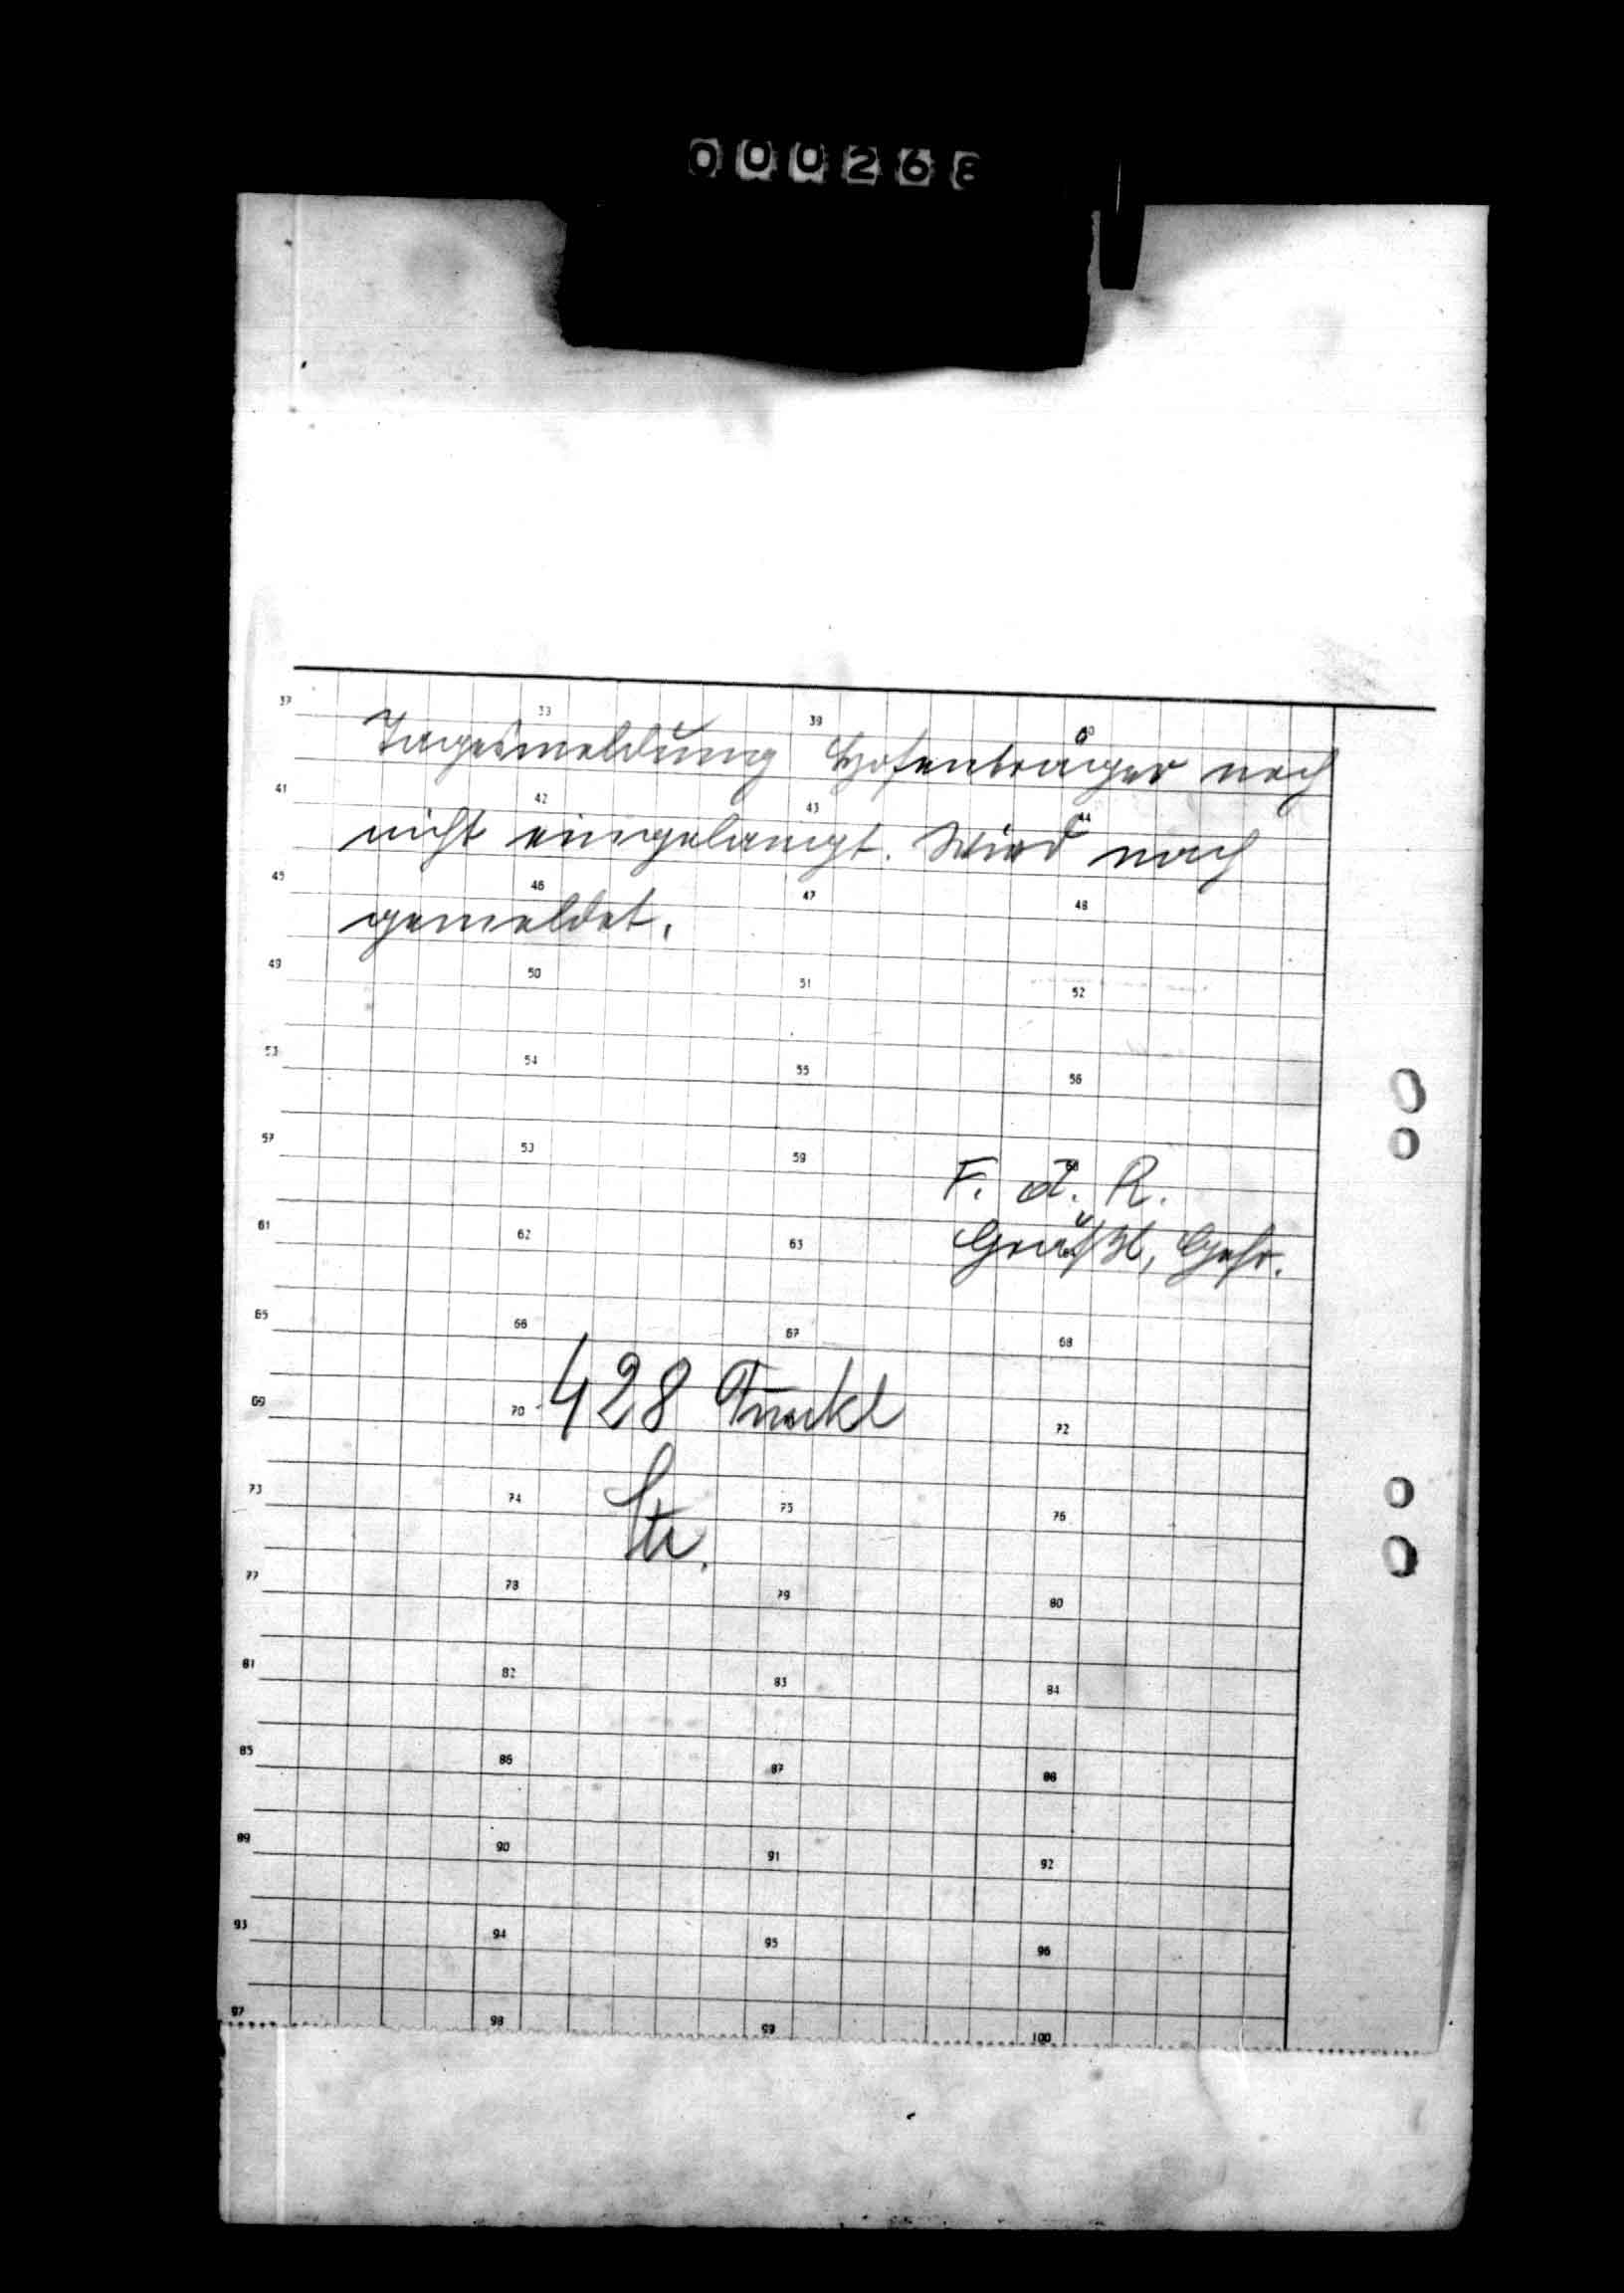 000268
37 33 39 40
Tagesmeldung Hosenträger noch
41 42 43 44
nicht eingelangt. Wird noch
45 46 47 48
gemeldet.
49 50 51 52
53 54 55 56
57 53 59 60
F. d. R.
61 62 63
Gefr.
65 66 67 68
428
69 70 72
73 74 75 76
77 78 79 80
81 82 83 84
85 86 87 88
89 90 91 92
93 94 95 96
97 98 99 100